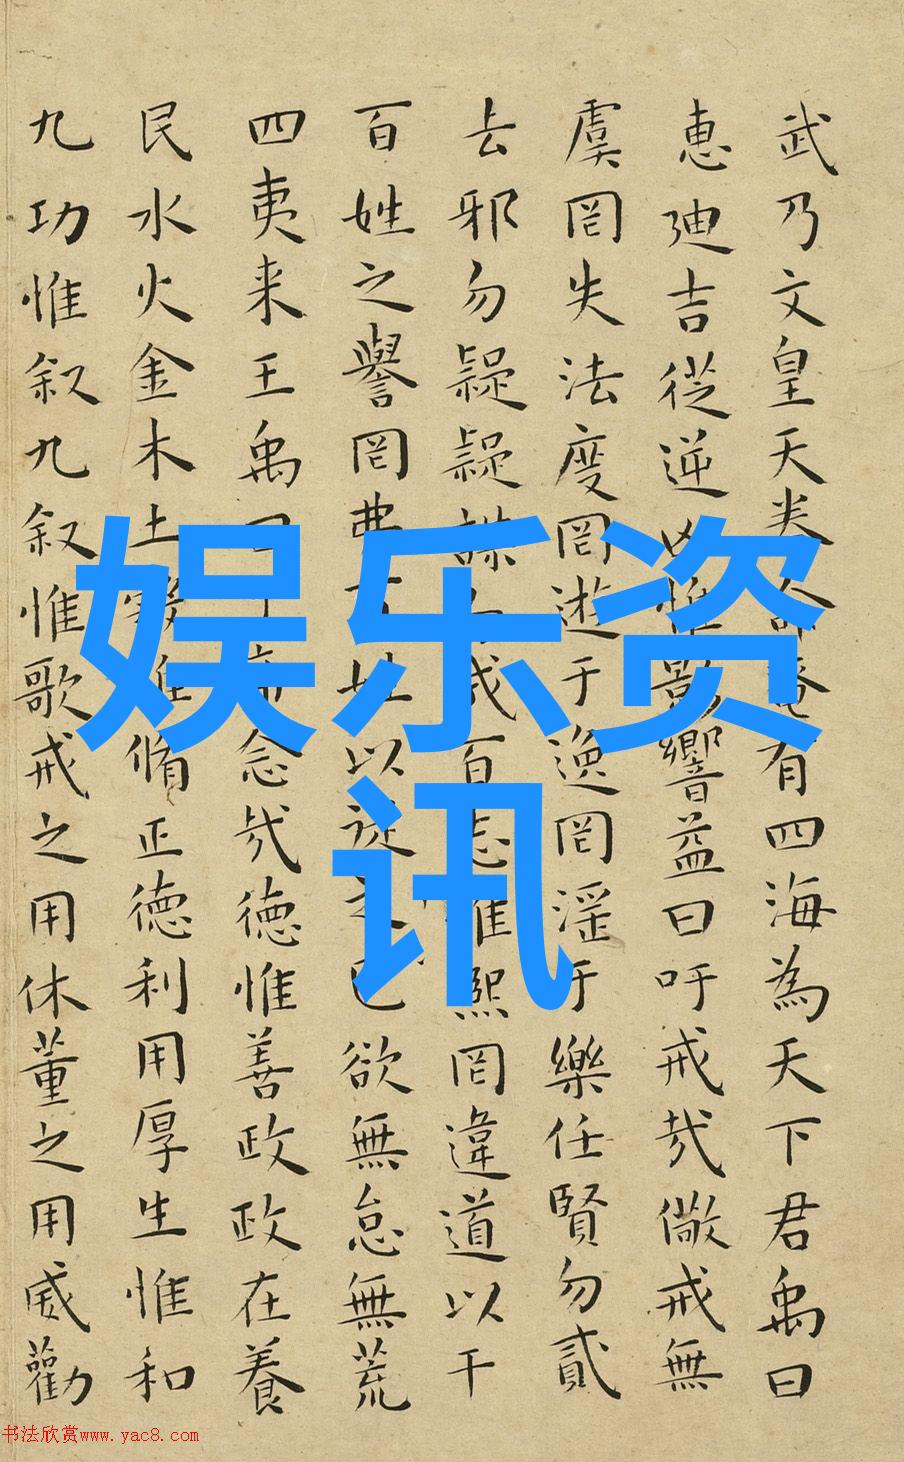 武乃文皇天眷命奄有四海為天下君禹曰
惠廸吉從逆凶惟影響益曰吁戒哉儆戒無
虞罔失法度罔遊于逸罔淫于樂任賢勿貳
去邪勿疑疑謀勿成百志惟熙罔違道以干
百姓之譽罔弗百姓以從之己欲無怠無荒
四夷来王禹曰帝念哉德惟善政政在養
民水火金木土穀惟脩正德利用厚生惟和
九功惟叙九叙惟歌戒之用休董之用威勸
娱乐资
讯
书法欣赏www.yac8.com